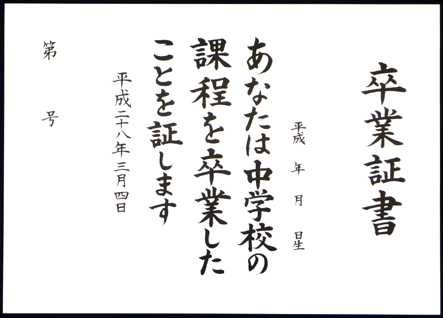 卒業証書
平成 年 月 日生
あなたは中学校の
課程を卒業した
ことを証します
平成二十八年三月四日
第 号